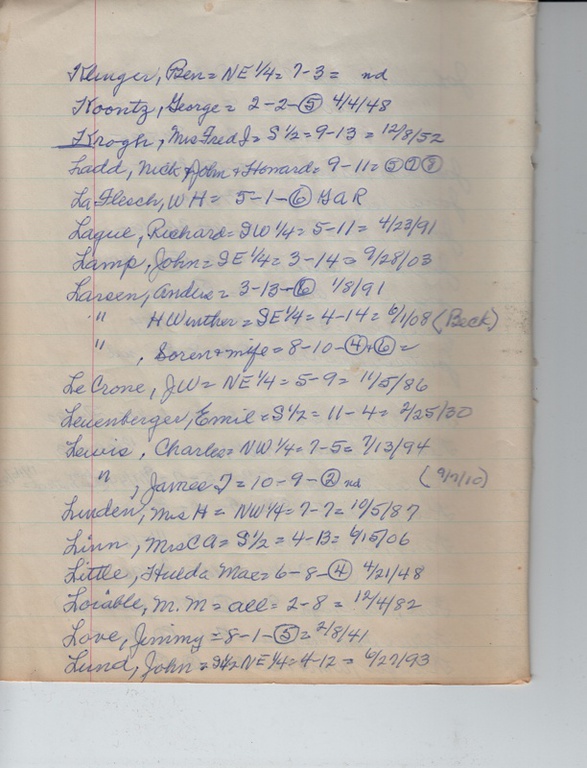 Klinger, Ben = NE 1/4 = 7-3 = nd
Koontz, George = 2-2-⑤ 4/4/48
Krogh, Mrs Fred J = S 1/2 = 9-13 = 12/8/52
Ladd, Nick + John + Howard = 9-11 = ⑤⑦⑧
La Flesch, W H = 5-1-⑥ GaR
Lague, Richard = SW 1/4 = 5-11 = 4/23/91
Lamp, John = SE 1/4 = 3-14 = 9/28/03
Larsen, Andies = 3-13-⑥ 1/8/91
" H Winther = SE 1/4 = 4-14 = 6/1/08 (Beck)
" , Soren + wife = 8-10-④+⑥ =
Le Crone, JW = NE 1/4 = 5-9 = 11/5/86
Leuenberger, Emil = S 1/2 = 11-4 = 2/25/30
Lewis, Charles = NW 1/4 = 7-5 = 7/13/94
" , James T = 10-9-② nd (9/7/10)
Linden, Mrs H = NW 1/4 = 7-7 = 10/5/87
Linn, Mrs CA = S 1/2 = 4-B = 6/15/06
Little, Hulda Mae = 6-8-④ 4/21/48
Loiable, M. M = all = 2-8 = 12/4/82
Love, Jimmy = 8-1-⑤ = 2/8/41
Lund, John = S 1/2 NE 1/4 = 4-12 = 6/27/93